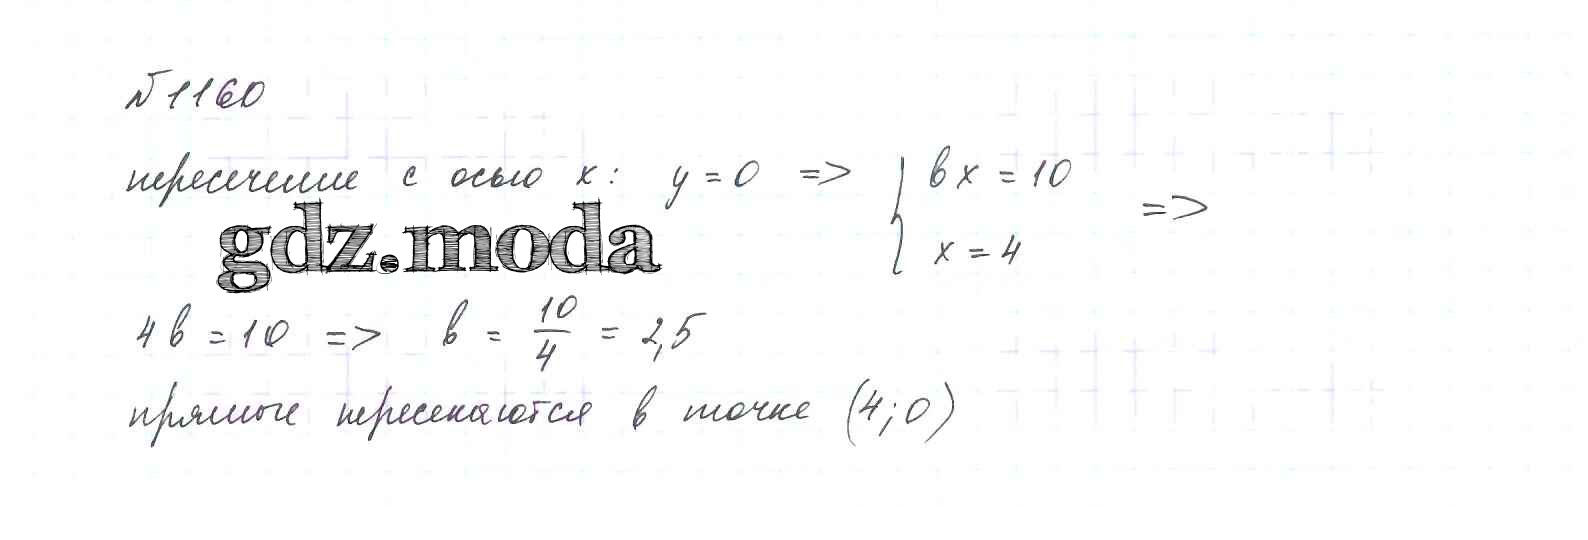 №1160
пересечение с осью x: y = 0 => { bx = 10
x = 4 =>
gdz.moda
4b = 10 => b = 10/4 = 2,5
прямые пересекаются в точке (4; 0)